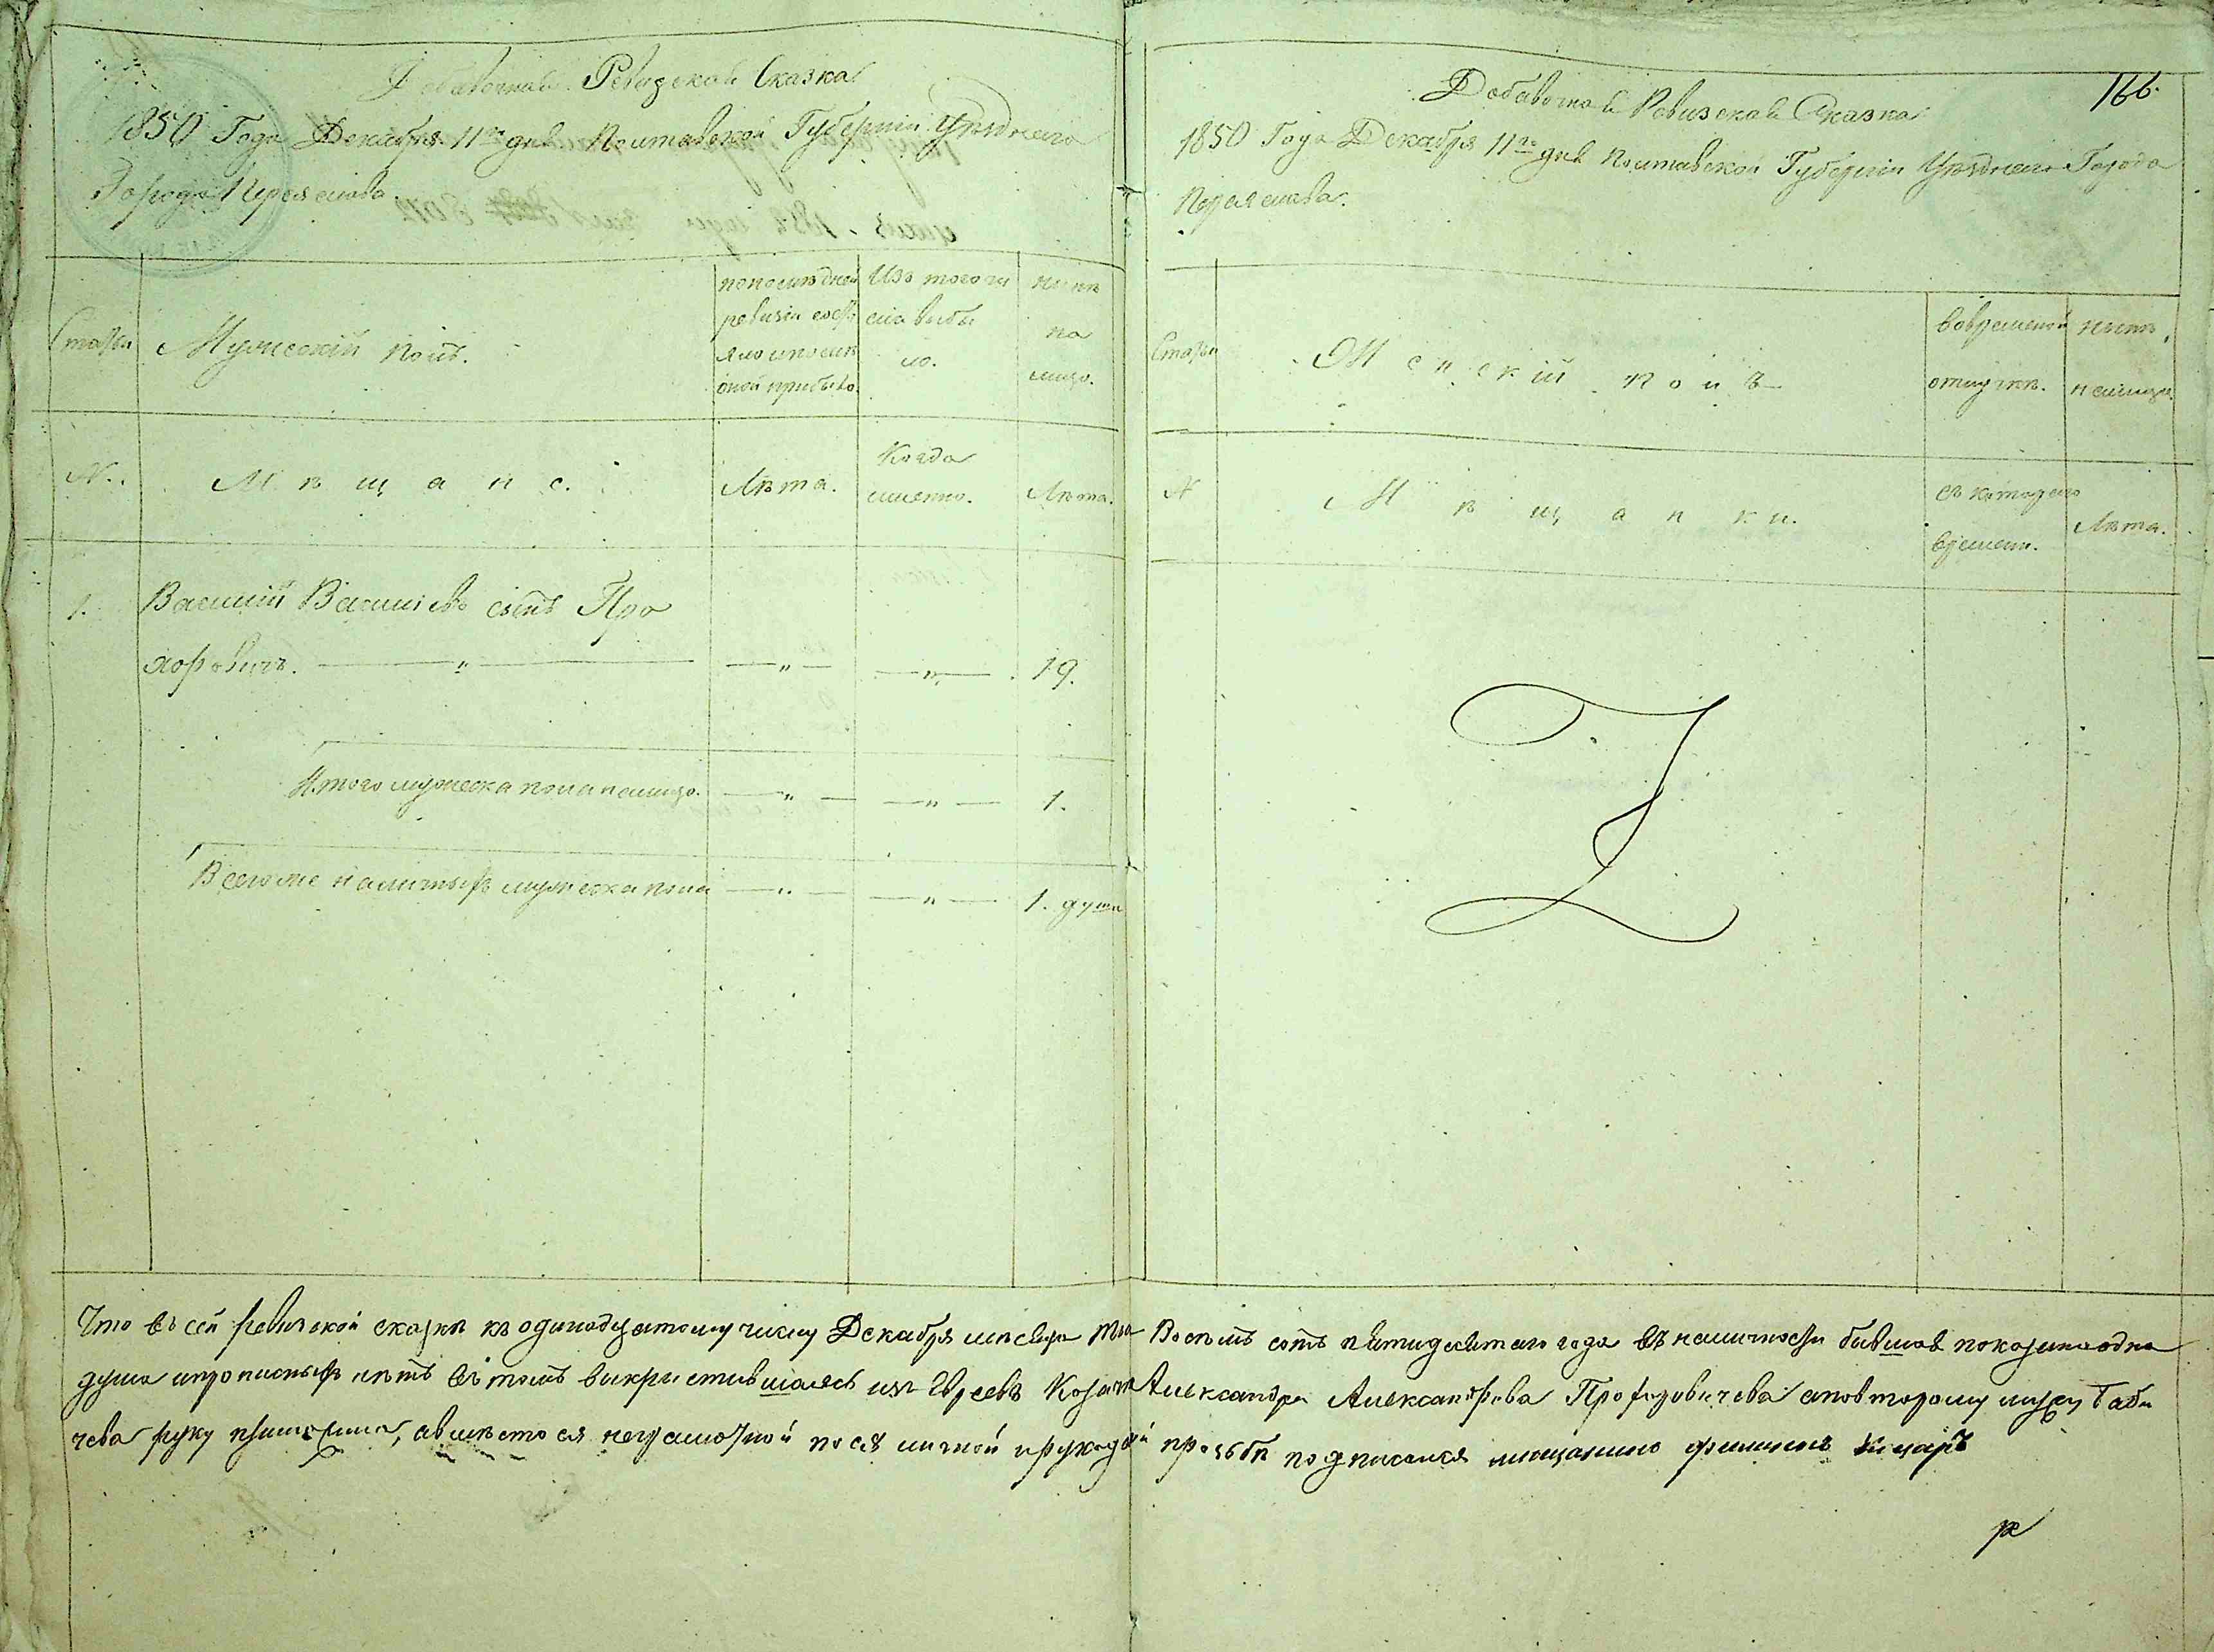 Добавочная Ревизская Сказка
1850 Года Декабря 11го дня Полтавской Губернии Уѣзднаго
Города Переяслава.
Статьи
Мужеский полъ.
по послѣдней
ревизіи состо
яло и послѣ
оной прибыло.
Изъ того чи
сла выбы
ло.
нынѣ
на
лицо.
№.
Мѣщане.
Лѣта.
Когда
именно.
Лѣта.
1.
Василий Васильевъ сынъ Про
хоровичъ. — „ — — „ — — „ — 19.
Итого мужеска пола налицо. — „ — — „ — 1.
Всего же наличныхъ мужеска пола — „ — — „ — 1. душа
166.
Добавочная Ревизская Сказка
1850 Года Декабря 11го дня Полтавской Губерніи Уѣзднаго Города
Переяслава.
Статьи
Женский полъ
во временной
отлучкѣ.
нынѣ
налицо.
№
Мѣщанки.
съ котораго
времени.
Лѣта.
Что въ сей ревизской сказкѣ къ одинадцатому числу Декабря мѣсяца Восемь сотъ пятидесятаго года въ наличности бывшая показана одна
душа и прописныхъ нѣтъ въ томъ выкрестившаясь изъ Евреевъ Александра Александрова Прохоровичева а по второму мужу Баби
чева руку приложила, а вмѣсто ея неграмотной по ея личной и рукодан й прозьбѣ подписался мещанинъ